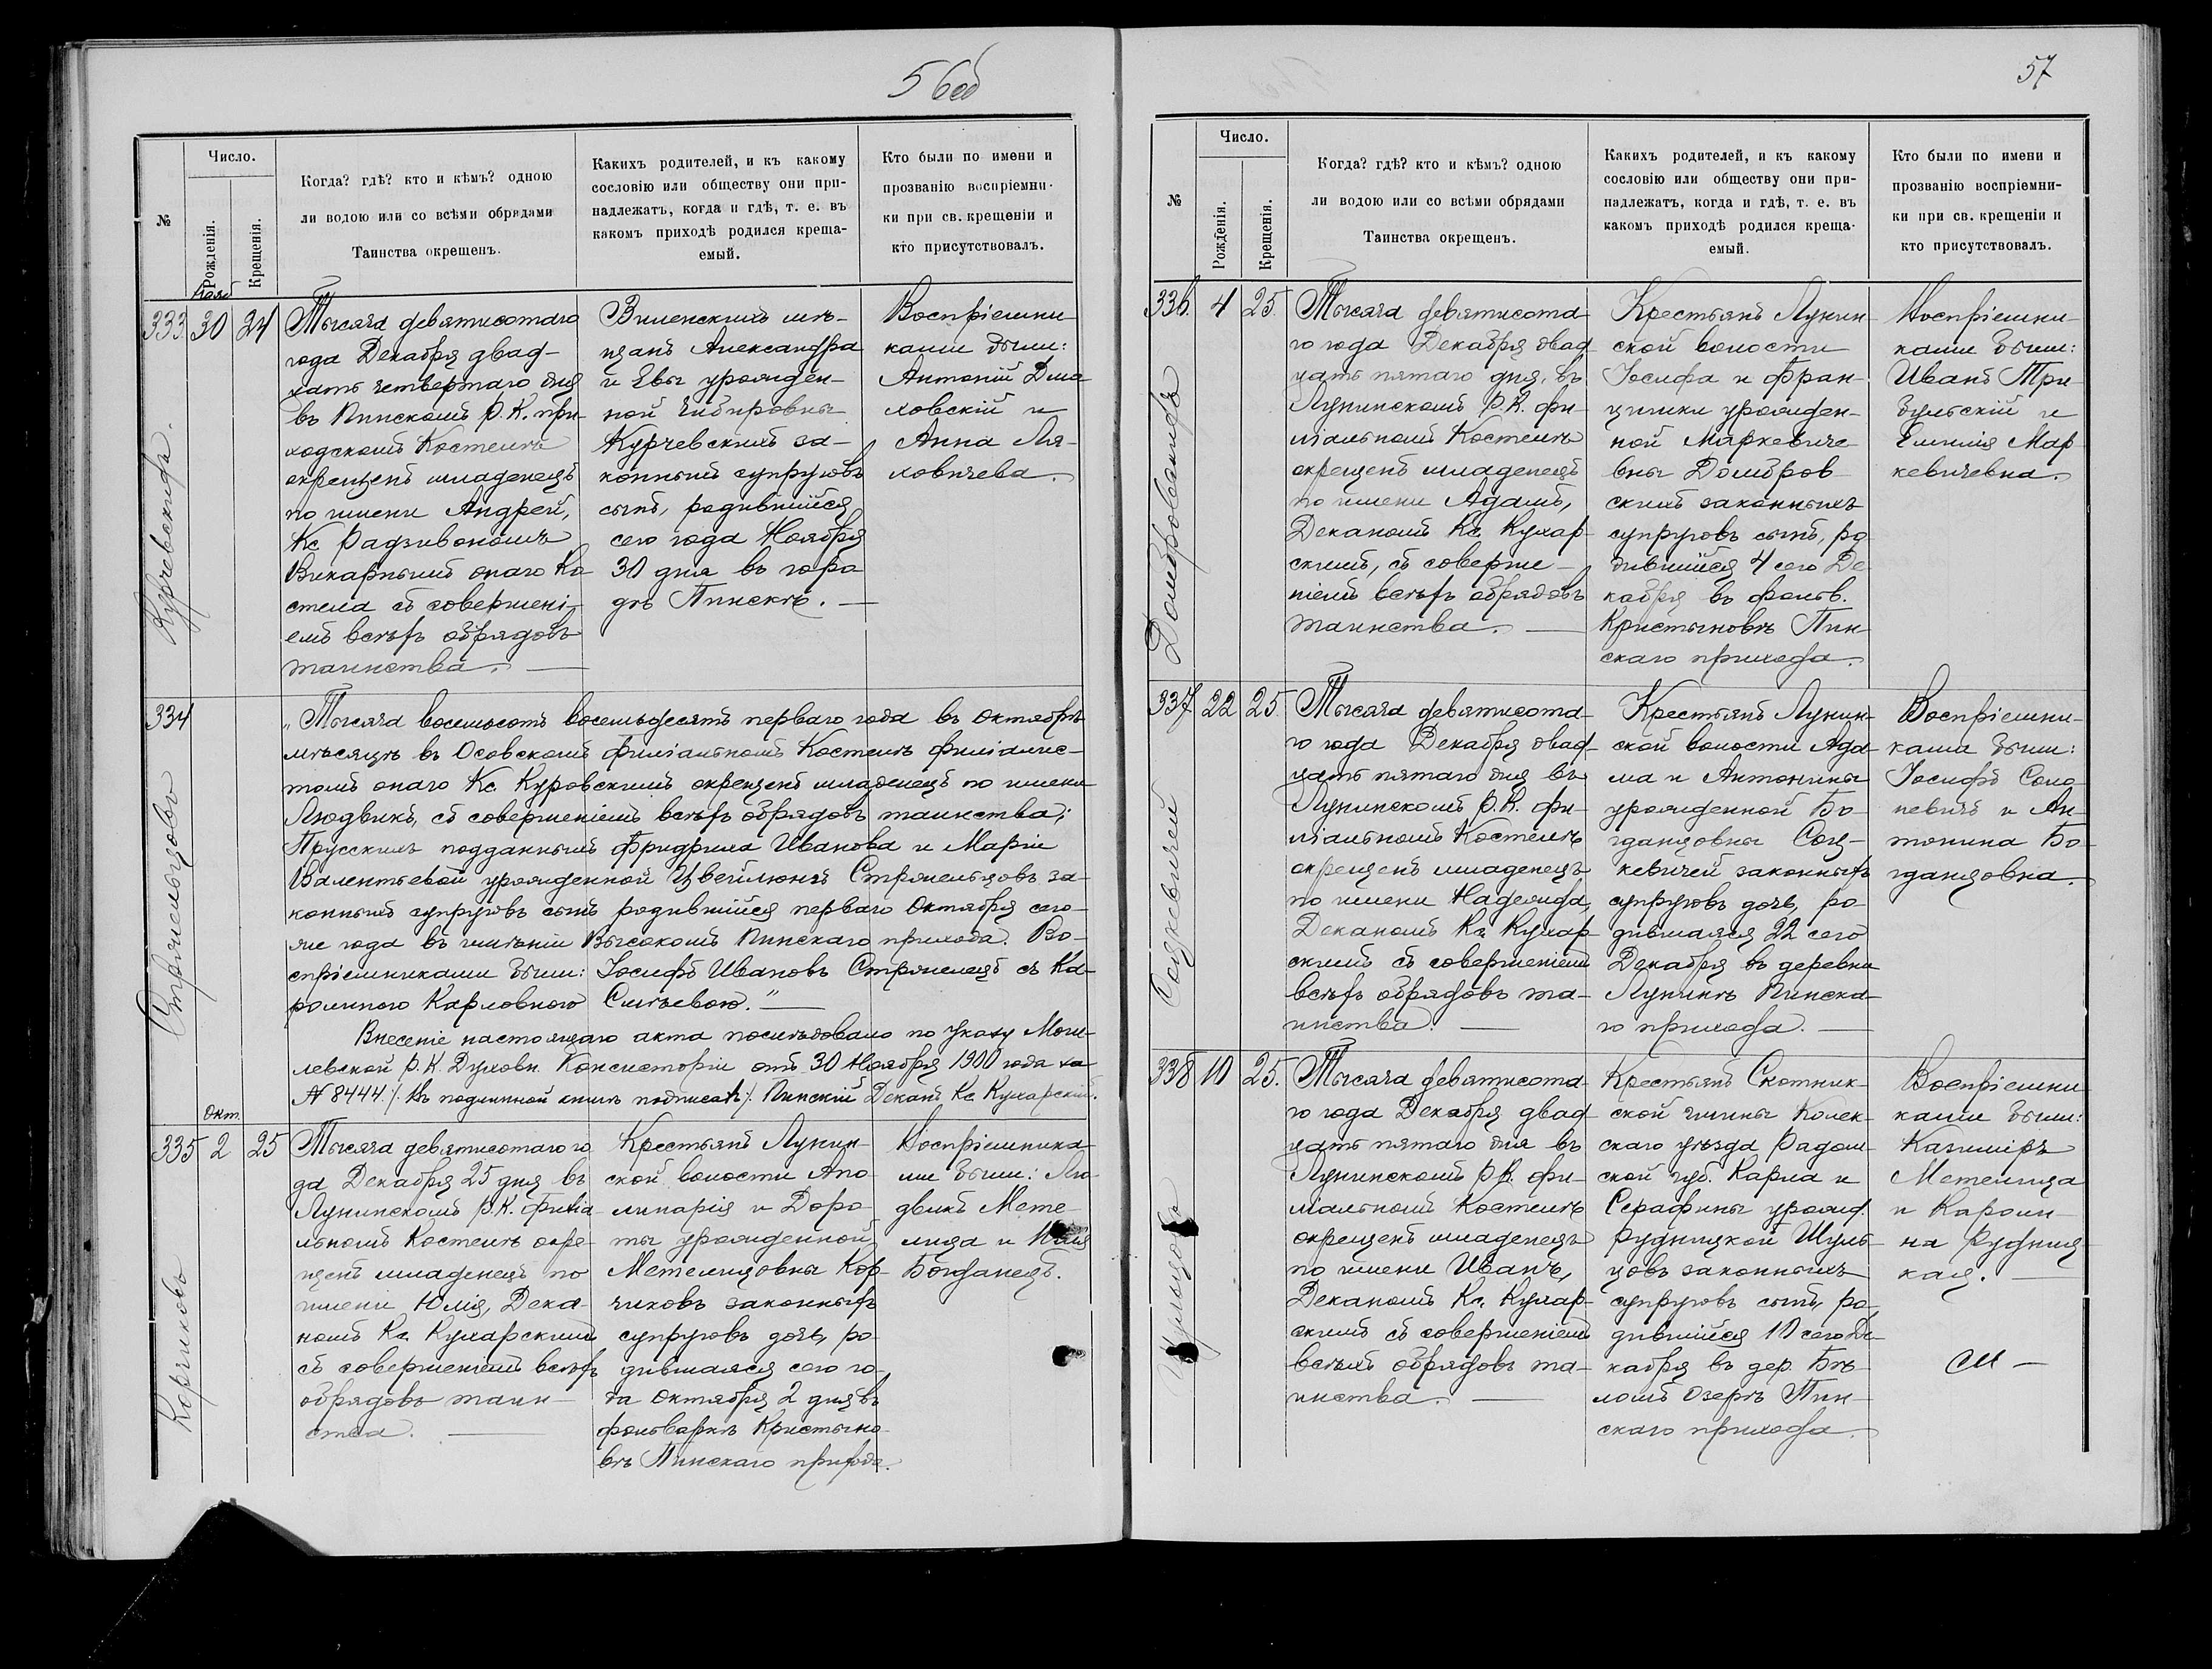 56об
№
Число.
Рожденія.
Крещенія.
Когда? гдѣ? кто и кѣмъ? одною
ли водою или со всѣми обрядами
Таинства окрещенъ.
Какихъ родителей, и къ какому
сословію или обществу они при-
надлежатъ, когда и гдѣ, т. е. въ
какомъ приходѣ родился креща-
емый.
Кто были по имени и
прозванію воспріемни-
ки при св. крещеніи и
кто присутствовалъ.
Нояб
333 30 24
Тысяча девятисотаго
года Декабря двад-
цать четвертаго дня
въ Пинскомъ Р. К. при-
ходскомъ Костелѣ
окрещенъ младенецъ
по имени Андрей,
Кс Радзивономъ
Викарнымъ онаго Ко
стела съ совершені-
емъ всѣхъ обрядовъ
таинства. —
Виленскихъ мѣ-
щанъ Александра
и Евы урожден-
ной
Курчевскихъ за-
конныхъ супруговъ
сынъ, родившійся
сего года Ноября
30 дня въ горо
дѣ Пинскѣ. —
Воспріемни
ками были:
Антоній
ховскій и
Анна Ля-
ховичева.
334
Стржельцовъ
„Тысяча восемьсотъ восемьдесятъ перваго года въ Октябрѣ
мѣсяцѣ въ Осовскомъ филіальномъ Костелѣ филіалис-
томъ онаго Кс. Куровскимъ окрещенъ младенецъ по имени
Людвикъ, съ совершеніемъ всѣхъ обрядовъ таинства;
Прусскихъ подданныхъ Фридриха Иванова и Маріи
Валентьевой урожденной Стржельцовъ за-
конныхъ супруговъ сынъ родившійся перваго Октября сего-
же года въ имѣніи Высокомъ Пинскаго прихода. Во-
спріемниками были: Іосифъ Ивановъ Стржелецъ съ Ка-
ролиною Карловною." —
Внесеніе настоящаго акта послѣдовало по Указу Моги-
левской Р. К. Духовн. Консисторіи отъ 30 Ноября 1900 года за
№ 8444 /. Въ подлинной книгѣ подписалъ /. Пинскій Деканъ Кс. Кухарскій.
Окт.
335 2 25
Корчиковъ
Тысяча девятисотаго го
да Декабря 25 дня въ
Лунинскомъ Р. К. филіа
льномъ Костелѣ окре-
щенъ младенецъ по
имени Юлія, Дека-
номъ Кс. Кухарскимъ
съ совершеніемъ всѣхъ
обрядовъ таин-
ства. —
Крестьянъ Лунин-
ской волости Апо-
линарія и Доро-
ты урожденной
Метелицовны Кор-
чиковъ законныхъ
супруговъ дочь, ро-
дившаяся сего го-
да Октября 2 дня въ
фольваркѣ Кристыно-
вѣ Пинскаго прихода.
Воспріемника
ми были: Лю
двикъ Мете-
лица и
Богданецъ.
57
№
Число.
Рожденія.
Крещенія.
Когда? гдѣ? кто и кѣмъ? одною
ли водою или со всѣми обрядами
Таинства окрещенъ.
Какихъ родителей, и къ какому
сословію или обществу они при-
надлежатъ, когда и гдѣ, т. е. въ
какомъ приходѣ родился креща-
емый.
Кто были по имени и
прозванію воспріемни-
ки при св. крещеніи и
кто присутствовалъ.
336. 4 25.
Тысяча девятисота-
го года Декабря двад
цать пятаго дня, въ
Лунинскомъ Р. К. фи-
ліальномъ Костелѣ
окрещенъ младенецъ
по имени Адамъ,
Деканомъ Кс. Кухар-
скимъ, съ соверше-
ніемъ всѣхъ обрядовъ
таинства. —
Крестьянъ Лунин-
ской волости
Іосифа и Фран-
цишки урожден-
ной Маркевиче
вны Домбров-
скихъ законныхъ
супруговъ сынъ, ро
дившійся 4 сего Де
кабря въ фольв.
Кристыновѣ Пин
скаго прихода.
Воспріемни-
ками были:
Иванъ Три-
бульскій и
Емилія Мар
кевичевна.
337 22 25.
Сацкевичей
Тысяча девятисота-
го года Декабря двад-
цать пятаго дня въ
Лунинскомъ Р. К. фи-
ліальномъ Костелѣ
окрещенъ младенецъ
по имени Надежда,
Деканомъ Кс Кухар-
скимъ съ совершеніемъ
всѣхъ обрядовъ та-
инства. —
Крестьянъ Лунин-
ской волости Ада-
ма и Антонины
урожденной Бо-
гданцовны Сац-
кевичей законныхъ
супруговъ дочь, ро-
дившаяся 22 сего
Декабря въ деревни
Лунинѣ Пинска-
го прихода. —
Воспріемни-
ками были:
Іосифъ Соло
невичъ и Ан-
тонина Бо-
гданцовна.
338 10 25.
Тысяча девятисота-
го года Декабря двад
цать пятаго дня въ
Лунинскомъ Р. К. фи-
ліальномъ Костелѣ
окрещенъ младенецъ
по имени Иванъ,
Деканомъ Кс. Кухар-
скимъ съ совершеніемъ
всѣхъ обрядовъ та-
инства. —
Крестьянъ Скотник-
ской гмины
скаго уѣзда Радом-
ской губ. Карла и
Серафины урожд.
Рудницкой Шуль-
цовъ законныхъ
супруговъ сынъ, ро-
дившійся 10 сего Де-
кабря въ дер. Бѣ-
ломъ Озерѣ Пин-
скаго прихода.
Воспріемни
ками были:
Казиміръ
Метелица
и Кароли-
на Рудниц-
кая. —